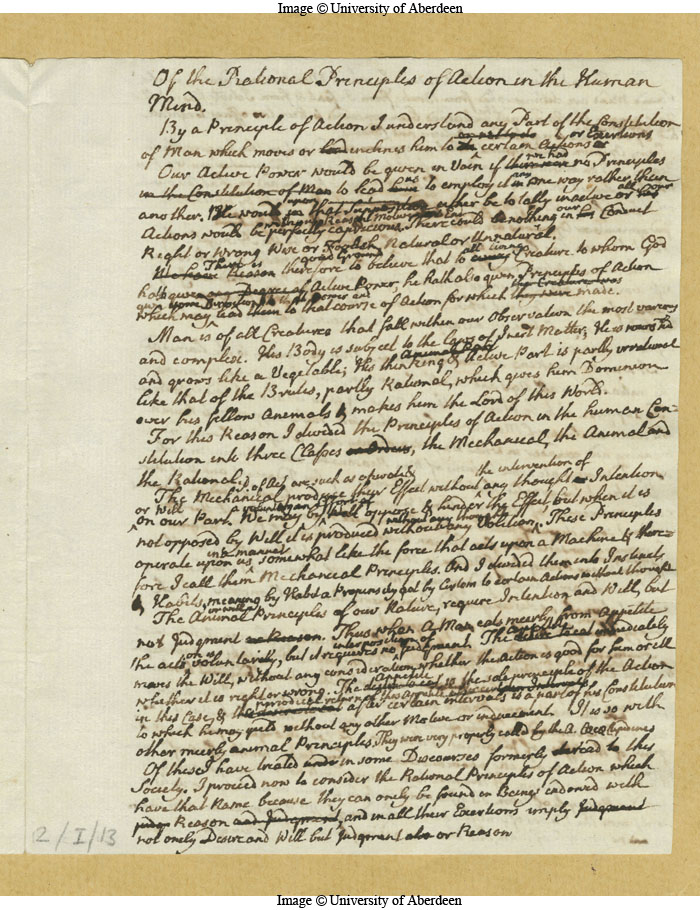 Image © University of Aberdeen
Of the Rational Principles of Action in the Human
Mind.
By a Principle of Action I understand any Part of the Constitution
or Exertions
of Man which moves or inclines him to certain Actions
Our Active Power would be given in Vain if we had no Principles
in the Constitution of Man to lead to employ it in one way rather than
another. We would either be totally inactive or all our
Actions would be perfectly capricious. There could be nothing in our Conduct
Right or Wrong Wise or Foolish Natural or Unnatural.
There is good Ground
Reason therefore to believe that to Creature to whom God
hath given Degree of Active Power, he hath also given Principles of Action
which may lead them to that course of Action for which they were made.
Man is of all Creatures that fall within our Observation the most various
and complex. His Body is subject to the Laws of Inert Matter; He is nourished
and grows like a Vegetable; His thinking & Active Part is partly irrational
like that of the Brutes, partly Rational, which gives him Dominion
over his fellow Animals & makes him the Lord of this World.
For this Reason I divided the Principles of Action in the human Con-
stitution into three Classes or Orders, the Mechanical, the Animal and
the Rational.
the intervention of
The Mechanical produce their Effect without any thought Intention
or Will
on our Part. We may by oppose & hinder the Effect but when it is
not opposed by Will it is produced without any Volition. These Principles
operate upon us somewhat like the force that acts upon a Machine & there-
in a manner
fore I call them Mechanical Principles. And I divided them into Instincts
& Habits, meaning by Habit a Propensity got by Custom to certain Actions without thought
The Animal Principles of our Nature, require Intention and Will, but
not Judgment or Reason. Thus when a Man eats meerly from Appetite
interposition of
he acts voluntarily, but it requires no Judgment. The to eat immediately
moves the Will, without any consideration whether the Action is good for him or ill
whether it is right or wrong. The Appetite is the sole principle of the Action
in this Case, & the after certain intervals is a part of his Constitution
to which he may yield without any other Motive or inducement. It is so with
other meerly animal Principles. They were very properly called by the A.
Of these I have treated in some Discourses formerly read to this
Society. I proceed now to consider the Rational Principles of Action which
have that Name because they can onely be found in Beings endowed with
Reason and Judgment, and in all their Exertions imply Judgment
not onely Desire and Will but Judgment or Reason
2/I/13
Image © University of Aberdeen